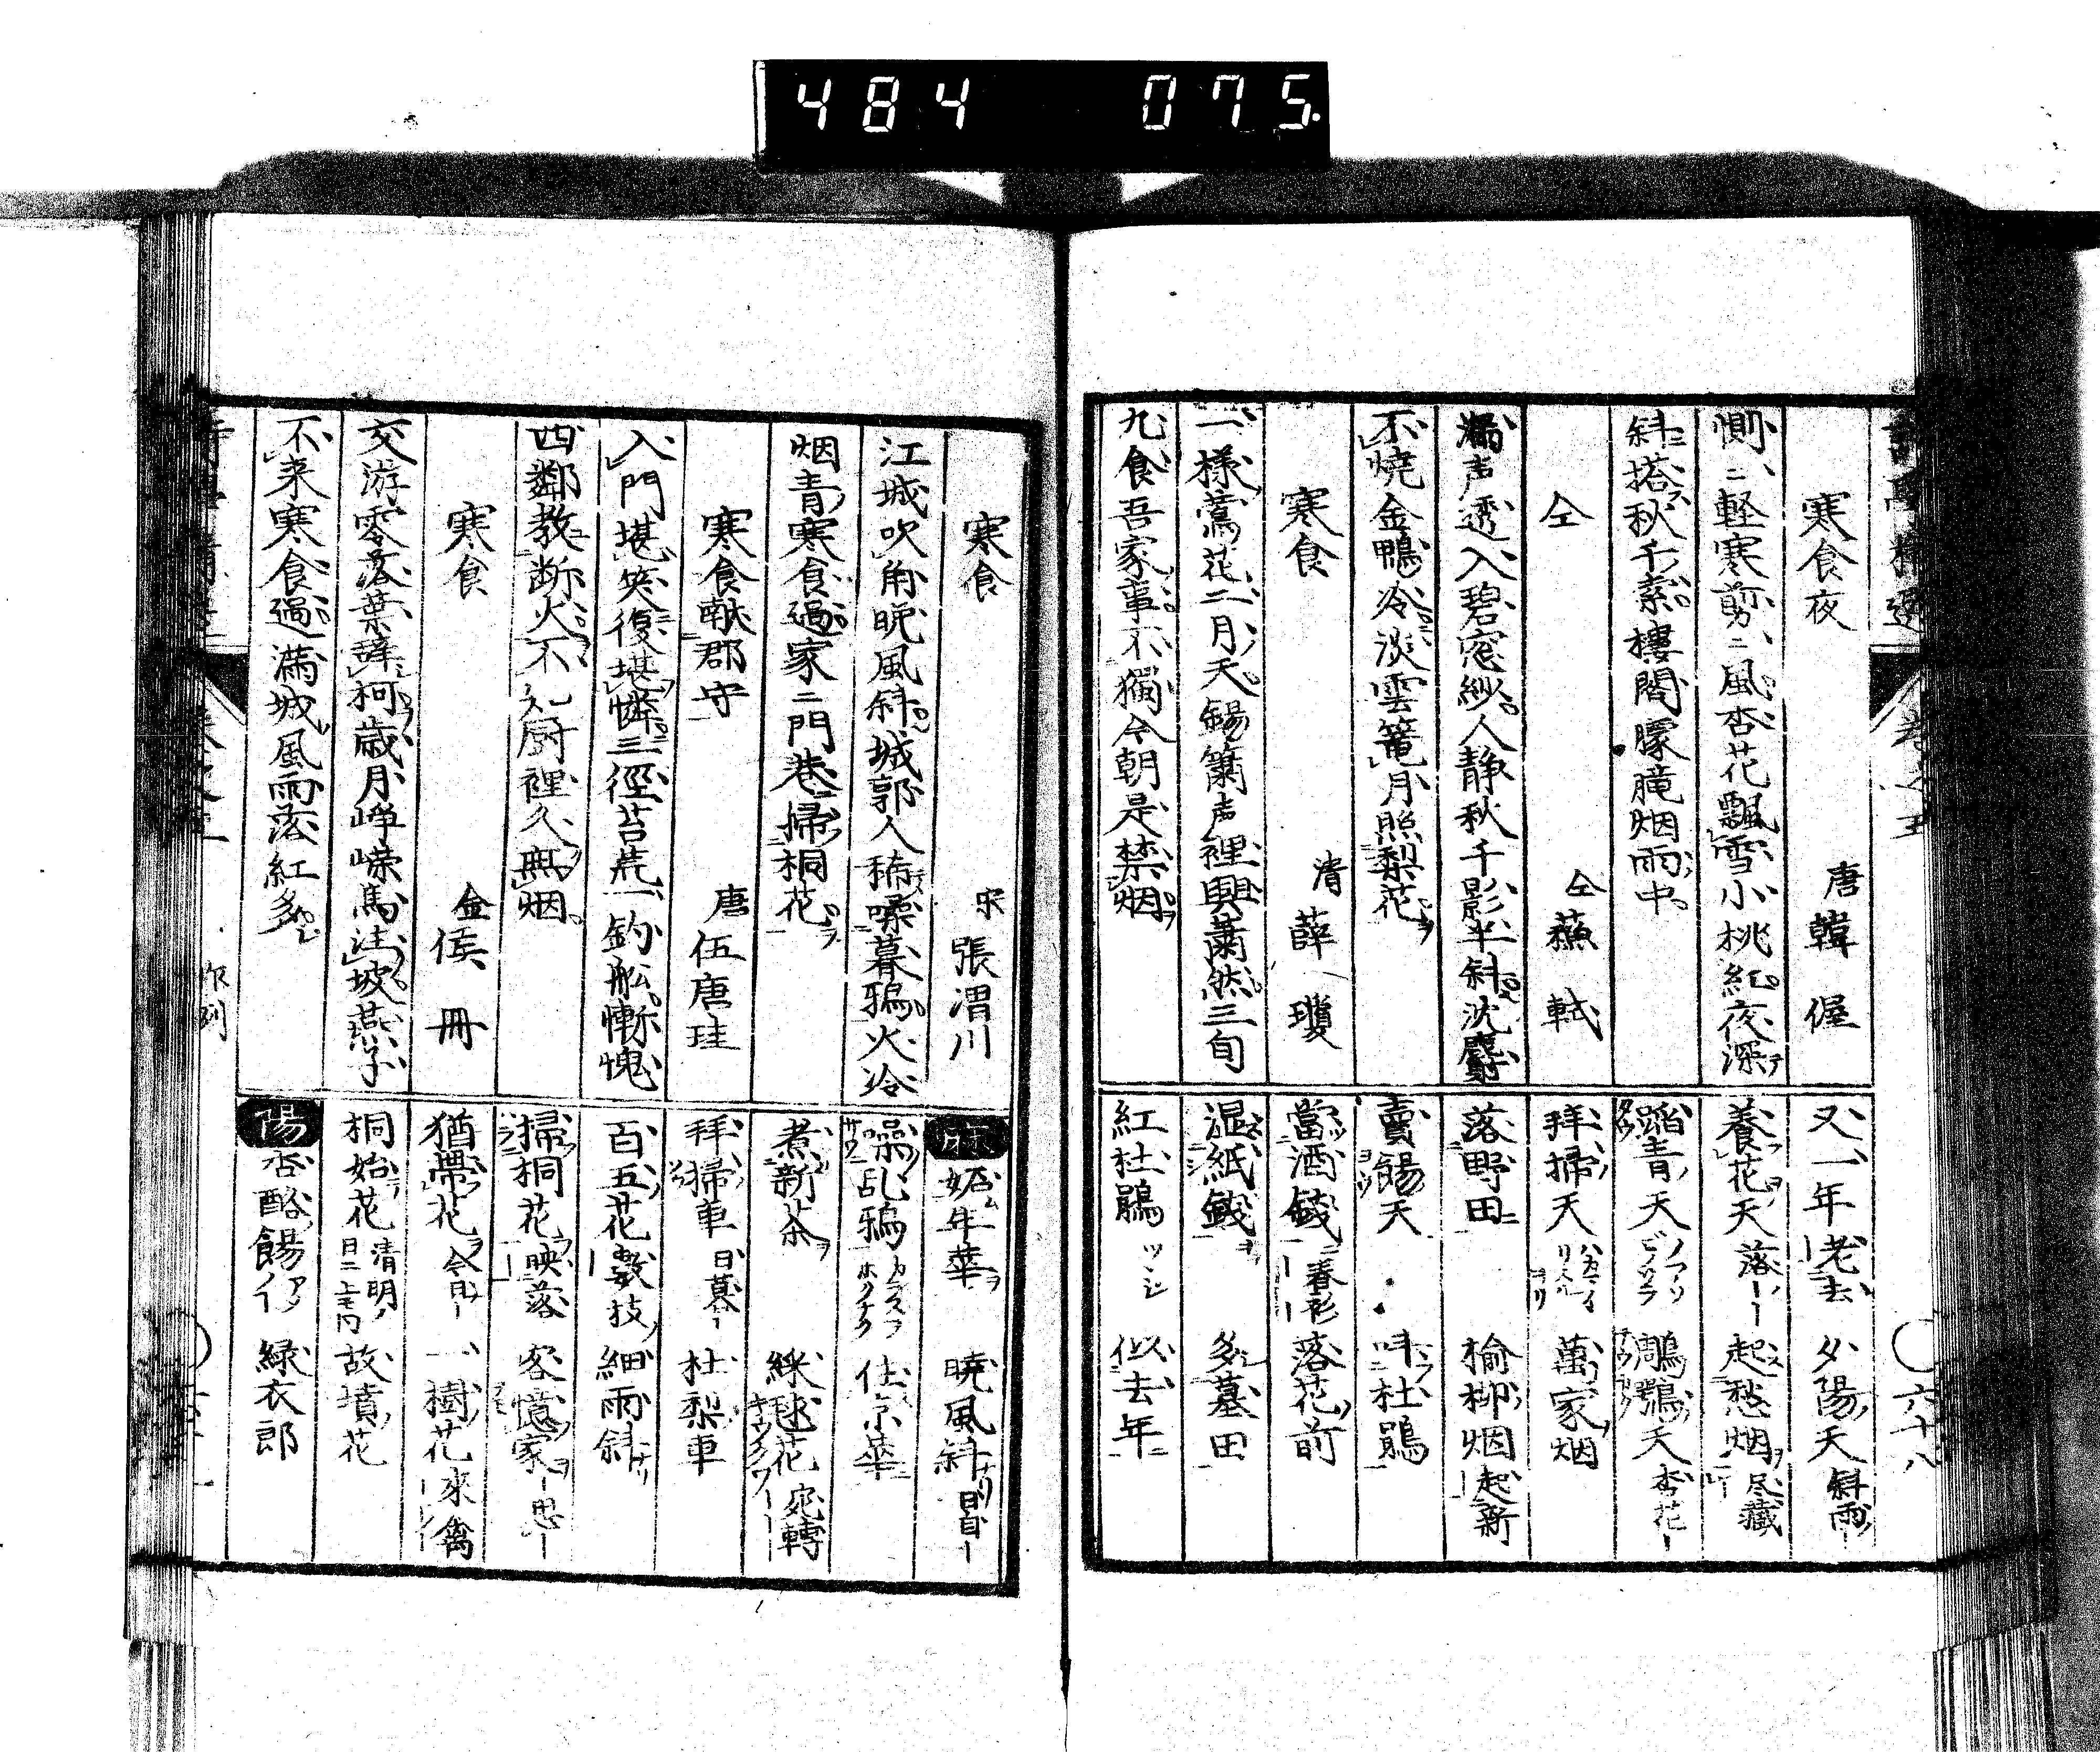 484 075.
寒食夜 唐 韓偓
惻〻軽寒剪〻風杏花飄雪小桃紅夜深
斜搭秋千索樓閣朦朧烟雨中
仝 仝 蘓軾
漏声透入碧窓紗人静秋千影半斜沈麝
不燒金鴨冷淡雲篭月照梨花
寒食 清 薛瓊
一樣鶯花二月天餳簫声裡興蕭然三旬
九食吾家事不獨今朝是禁烟
又一年老去 夕陽天斜雨
養花天落 起愁烟尽藏
蹈青天 鵰鶚天杏花
拜掃天 萬家烟
落野田 榆柳烟起新
賣餳天 叫杜鵑
當酒錢春衫 落花前
湿紙錢 多墓田
紅杜鵑 似去年
六十八
寒食 宋 張渭川
江城吹角晩風斜城郭人稀噪暮鴉火冷
烟青寒食過家〻門巷掃桐花
寒食献郡守 唐 伍唐珪
入門堪笑復堪憐三徑苔荒一釣舩慚愧
四鄰教断火不知厨裡久無烟
寒食 金 侯冊
交游零落葉辞柯歳月崢嶸馬注坡燕子
不来寒食過満城風雨落紅多
麻 妬年華 暁風斜
噪乱鴉 仕京華
煮新茶 綵毬花宛轉
拜掃車日暮 杜梨車
百五花數技 細雨斜
掃桐花映落 客憶家思
猶帶花今日 一樹花來禽
桐始花清明ノ日ニ 故墳花
陽 杏酪餳 緑衣郎